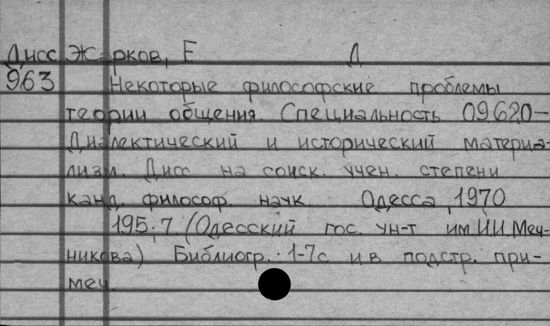 Дисс Жарков, Е Д
963 Некоторые философские проблемы
теории общения. Специальность 09620-
Диалектический и исторический материа-
лизм. Дисс на соиск. учен. степени
канд. философ. наук. Одесса, 1970
195; 7 (Одесский гос. ун-т им. И.И. Меч-
никова) Библиогр.: 1-7 с. и в подстр. при-
меч.